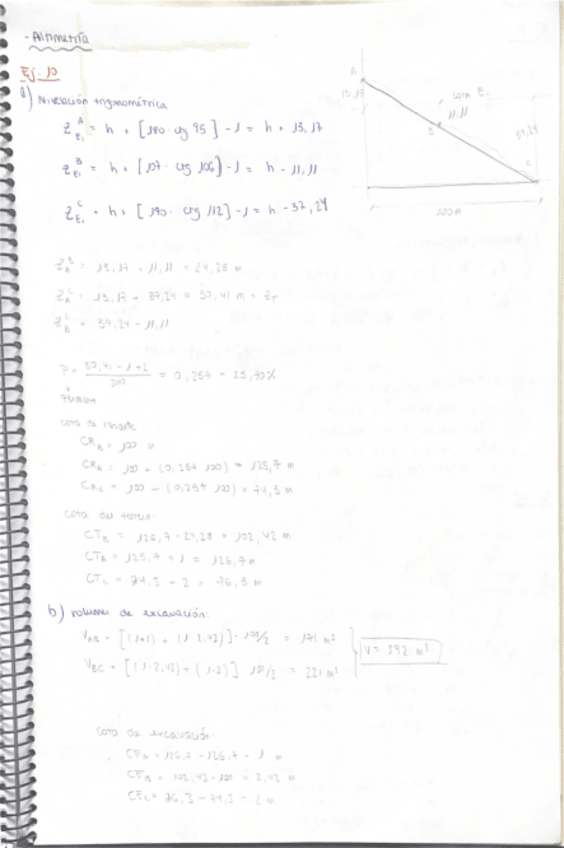 - Altimetría
Ej. 10
a) Nivelación trigonométrica
Z_{E1}^A = h + [180 · ctg 95] - 1 = h + 13,17
Z_{E1}^B = h + [107 · ctg 106] - 1 = h - 11,11
Z_{E1}^C = h + [190 · ctg 112] - 1 = h - 37,24
A
13,17
cota E1
11,11
B
37,24
C
200m
Z_A^B = 13,17 + 11,11 = 24,28 m
Z_A^C = 13,17 + 37,24 = 50,41 m = Z_T
Z_B^C = 37,24 - 11,11
P = (50,41 - 1 + 2)/200 = 0,257 = 25,70%
cota de rasante
CR_B = 100 m
CR_A = 100 + (0,257 · 100) = 125,7 m
CR_C = 100 - (0,257 · 100) = 74,3 m
cota del terreno:
CT_B = 126,7 - 24,28 = 102,42 m
CT_A = 125,7 + 1 = 126,7 m
CT_C = 74,3 + 2 = 76,3 m
b) volumen de excavación:
V_{AB} = [(1·1) + (1·2,42)] · 100/2 = 171 m³
V_{BC} = [(1·2,42) + (1·2)] 100/2 = 221 m³
V = 392 m³
Cota de excavación:
CE_A = 126,7 - 125,7 = 1 m
CE_B = 102,42 - 100 = 2,42 m
CE_C = 76,3 - 74,3 = 2 m